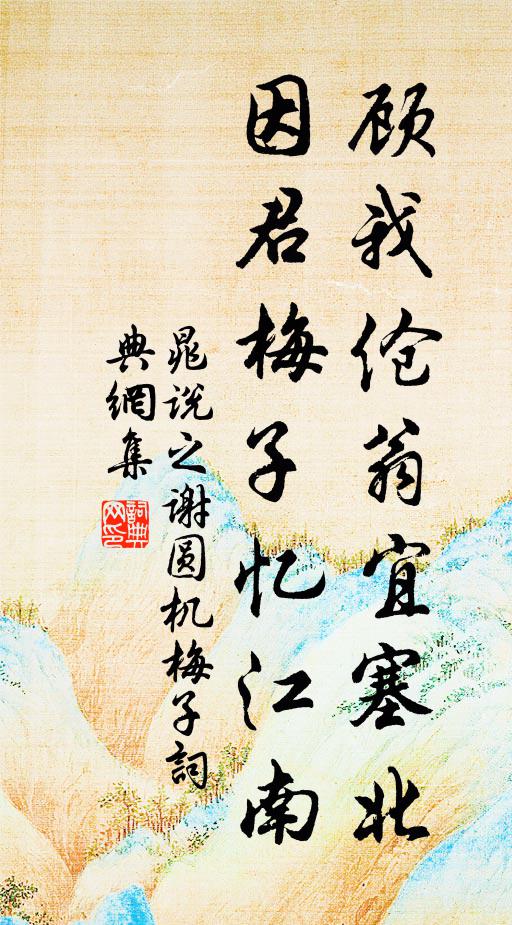 顾我伧翁宜塞北
因君梅子忆江南
晁说之谢圆机梅子詞
典網集
詞典
网印